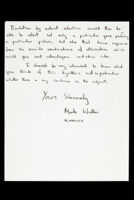 Evolution by natural selection would then be
able to select not only a particular gene producing
a particular protein, but also that
from the possible combinations of alternatives which
would give not advantageous
I should be very interested to know what
you think of this hypothesis and in particular
whether there is any evidence on the subject.
Yours Sincerely